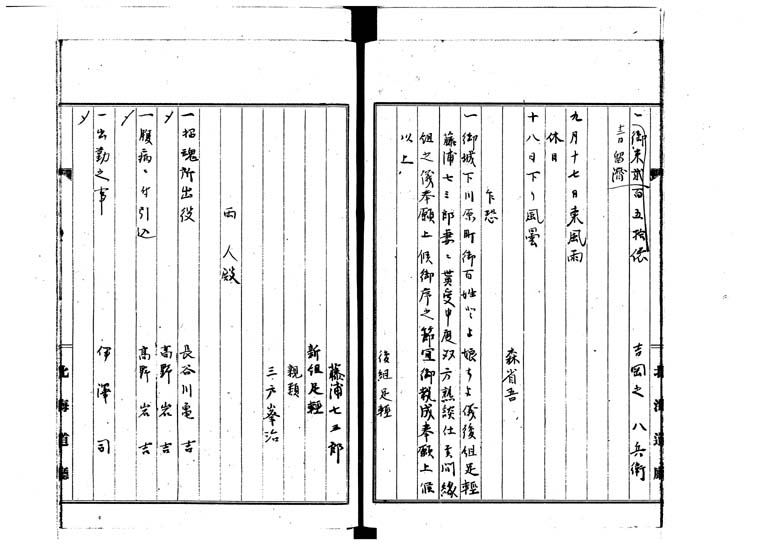 一御米弐百五拾俵
吉岡之 八兵衛
書留済
九月十七日東風雨
休日
十八日下り風曇
森省吾
乍恐
一御城下川原町御百姓とよ娘ちよ儀後組足軽
藤浦七三郎妻ニ貰受申度双方熟談仕候間縁
組之儀奉願上候御序之節宜御執成奉願上候
以上
後組足軽
藤浦七三郎
新組足軽
親類
三戸峯治
両人殿
一招魂所出役
長谷川亀吉
〃
高野岩吉
一腹病ニ付引込
高野岩吉
〃
一出勤之事
伊澤司
〃
北海道庁
北海道庁